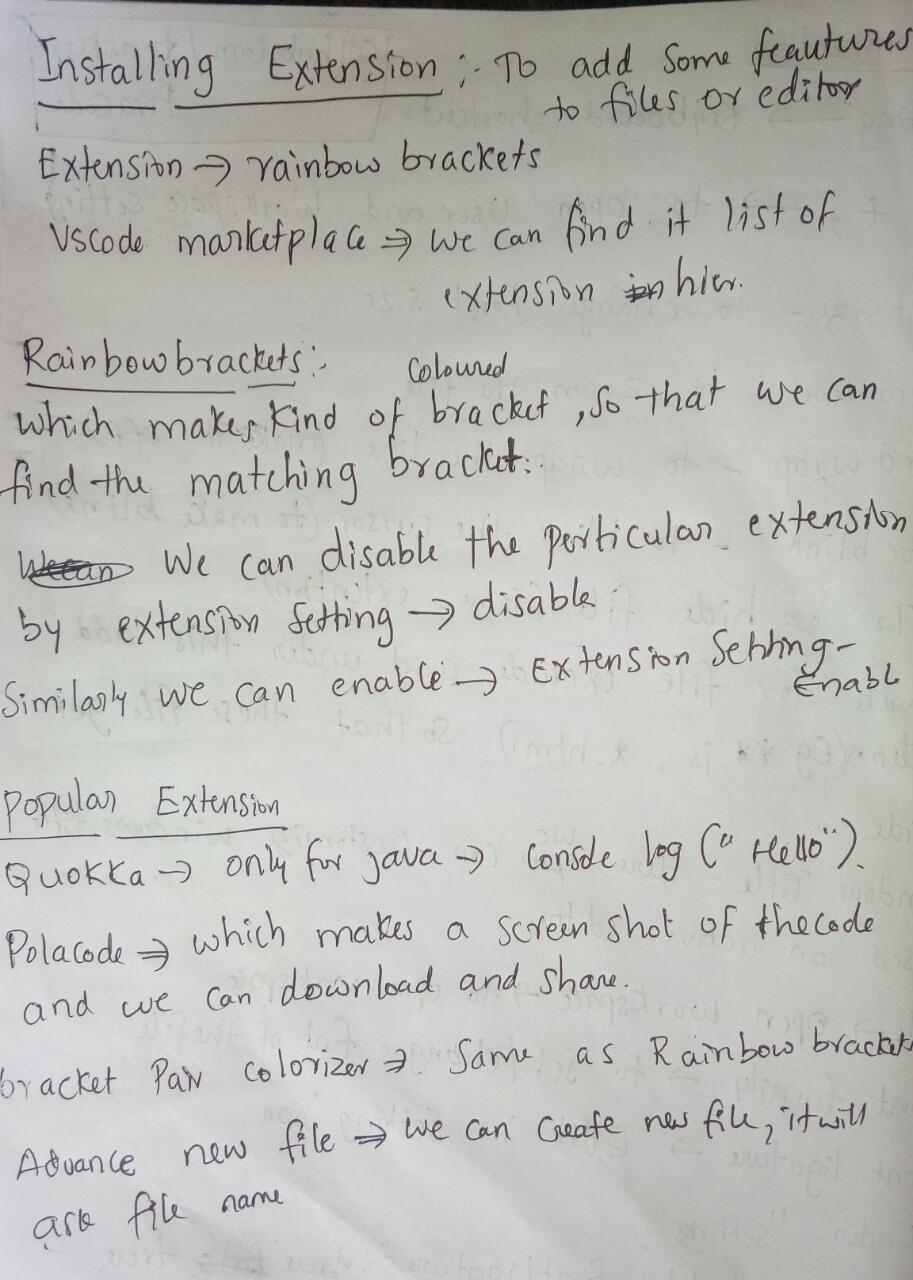 Installing Extension :- To add Some feautures
to files or editor
Extension → rainbow brackets
Vscode marketplace ⇒ we can find it list of
extension in hier.
Rainbow brackets :-
Coloured
which makes kind of bracket, so that we can
find the matching bracket.
We can We can disable the perticular extension
by extension Setting → disable
Similarly we can enable → Extension Setting -
Enable
Popular Extension
Quokka → only for java → Console log ("Hello").
Polacode ⇒ which makes a screen shot of the code
and we can download and share.
bracket Pair Colorizer ⇒ Same as Rainbow bracket
Advance new file ⇒ we can Create new file, it will
ask file name